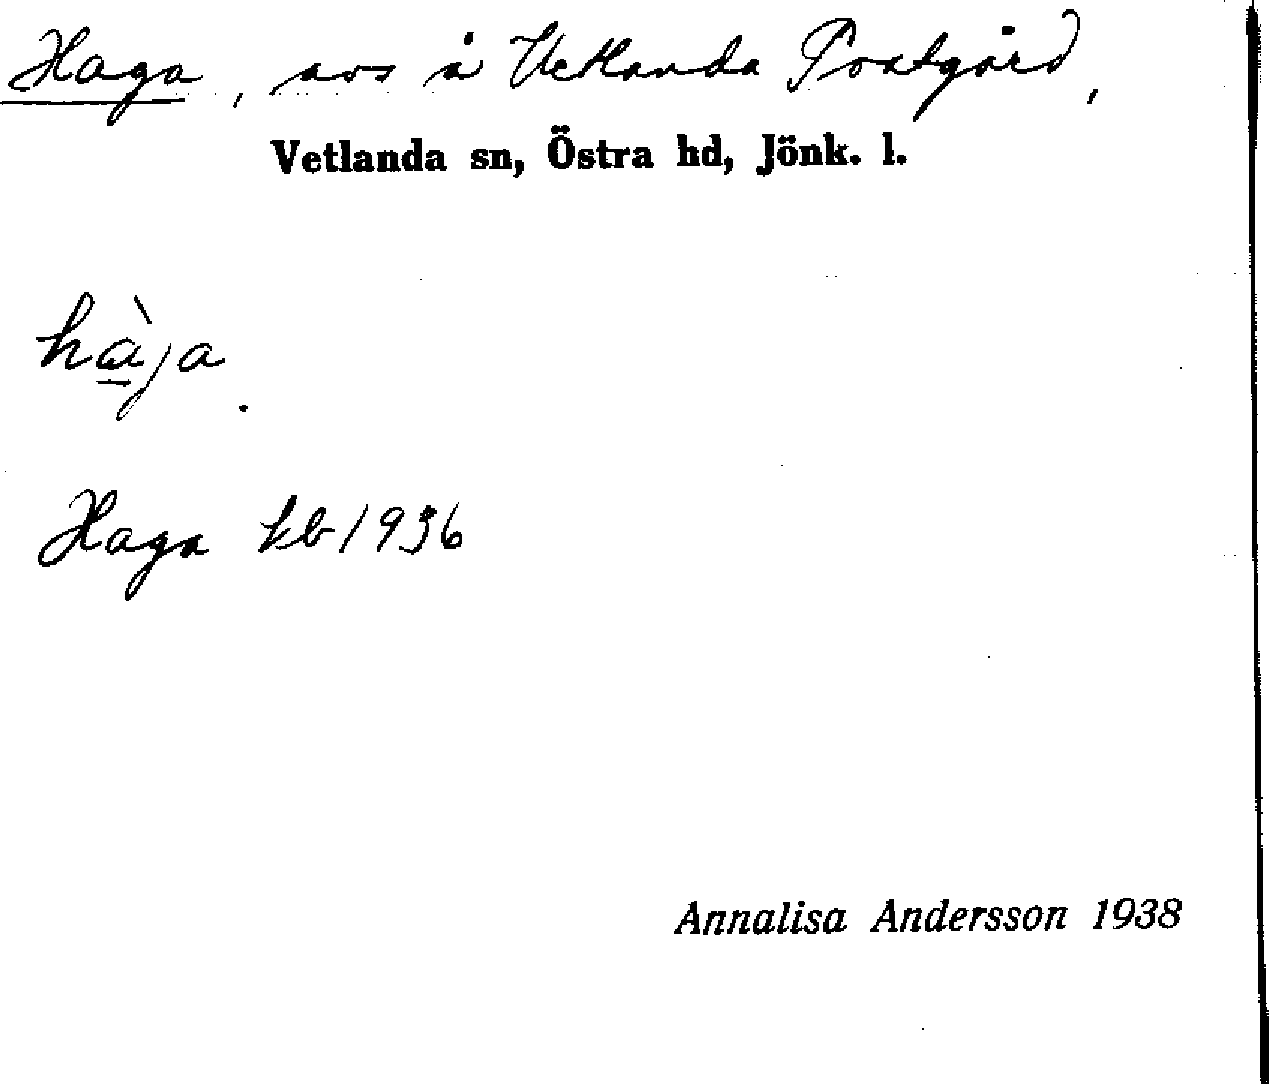 Haga, avs å Vetlanda Prästgård,
Vetlanda sn, Östra hd, Jönk. l.
hàja.
Haga kb 1936
Annalisa Andersson 1938